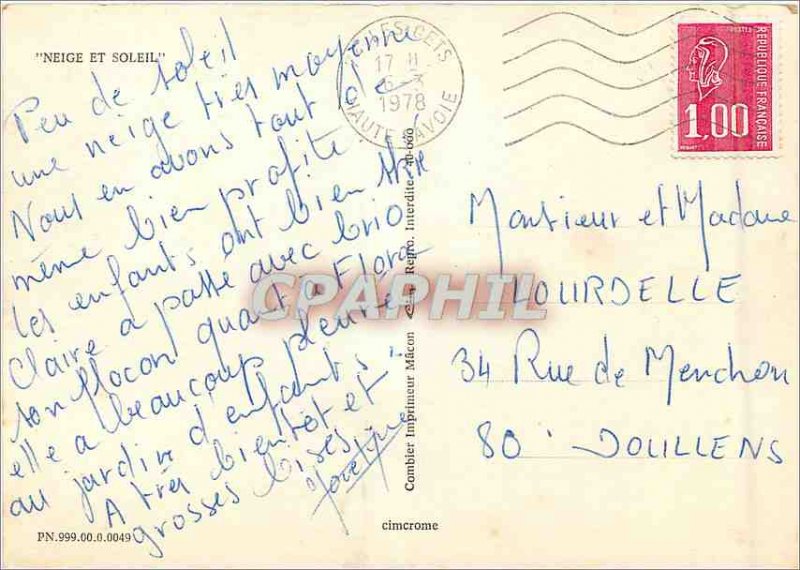 "NEIGE ET SOLEIL"
Peu de soleil
une neige très moyenne
Nous en avons tout de
même bien profité.
Les enfants ont bien skié
Claire a passé avec brio
son flocon quant à Flora
elle a beaucoup pleuré
au jardin d'enfants.
A très bientôt et
grosses bises
PN.999.00.0.0049
Combier Imprimeur Mâcon Repro. Interdite 40-000
cimcrome
LES GETS
17 H
1978
HAUTE SAVOIE
POSTES
RÉPUBLIQUE FRANÇAISE
1,00
Monsieur et Madame
LOURDELLE
34 Rue de Menchon
80 DOULLENS
CPAPHIL